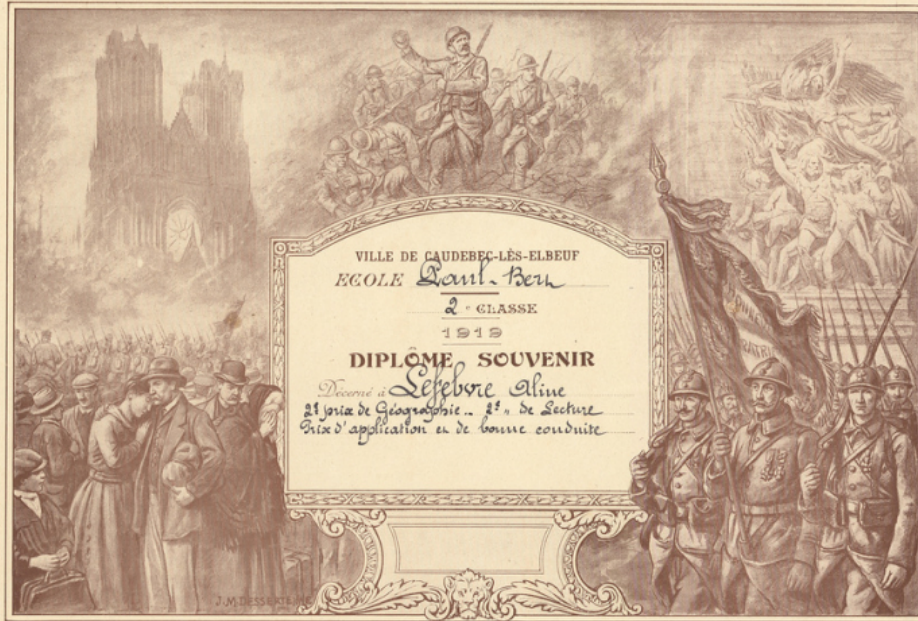 VILLE DE CAUDEBEC-LÈS-ELBEUF
ECOLE Paul-Bert
2e CLASSE
1919
DIPLÔME SOUVENIR
Décerné à Lefebvre Aline
2e prix de Géographie .. 2e " de Lecture
Prix d'application et de bonne conduite
PATRIE